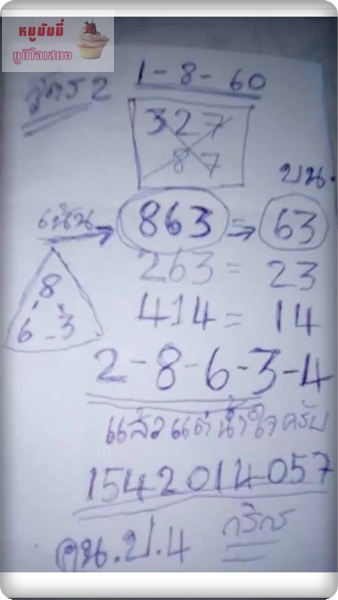 หมูมัมมี่
ภูมิใจเสนอ
สูตร 2
1-8-60
327
87
บน.
เน้น → 863 = 63
8
6-3
263 = 23
414 = 14
2-8-6-3-4
แล้วแต่น้ำใจครับ
1542014057
คน.ป.4